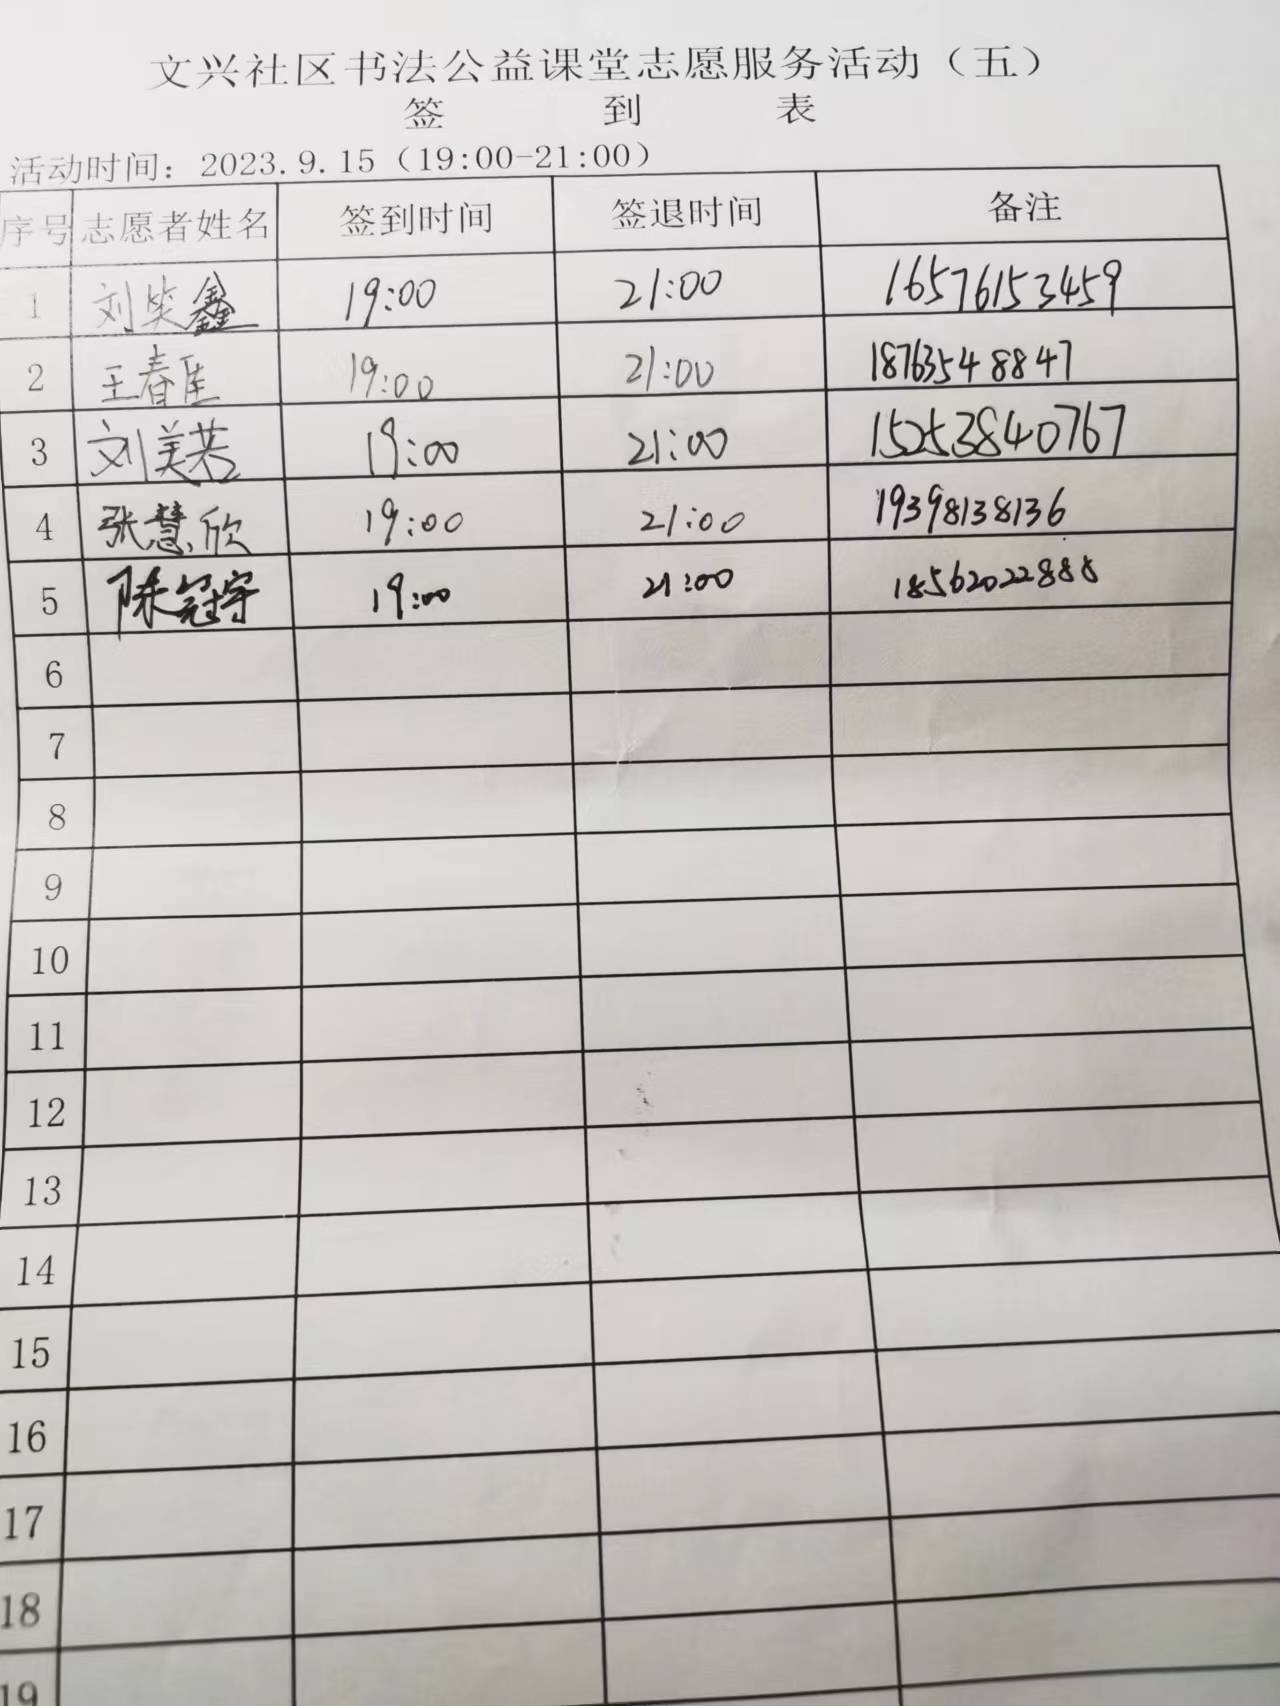 文兴社区书法公益课堂志愿服务活动（五）
签到表
活动时间：2023.9.15（19:00-21:00）
序号 志愿者姓名 签到时间 签退时间 备注
1 刘笑鑫 19:00 21:00 16576153459
2 王春 19:00 21:00 18763548847
3 刘美 19:00 21:00 15253840767
4 张慧欣 19:00 21:00 19398138136
5 陈冠宇 19:00 21:00 18562022888
6
7
8
9
10
11
12
13
14
15
16
17
18
19